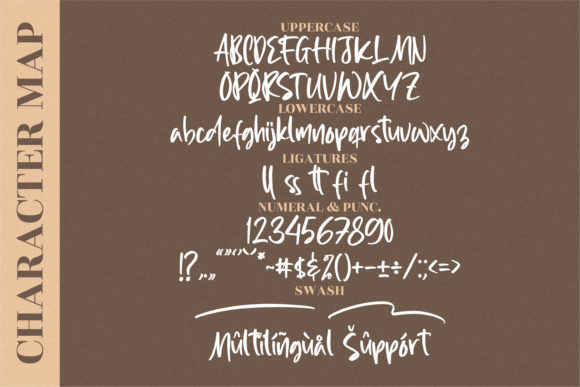 CHARACTER MAP
UPPERCASE
ABCDEFGHIJKLMN
OPQRSTUVWXYZ
LOWERCASE
abcdefghijklmnopqrstuvwxyz
LIGATURES
ll ss tt fi fl
NUMERAL & PUNC.
1234567890
!?,.„“”‘’ˇ*~#$&%()+-±÷/:;<=>
SWASH
Mûltïlíñgùål Šûppórt